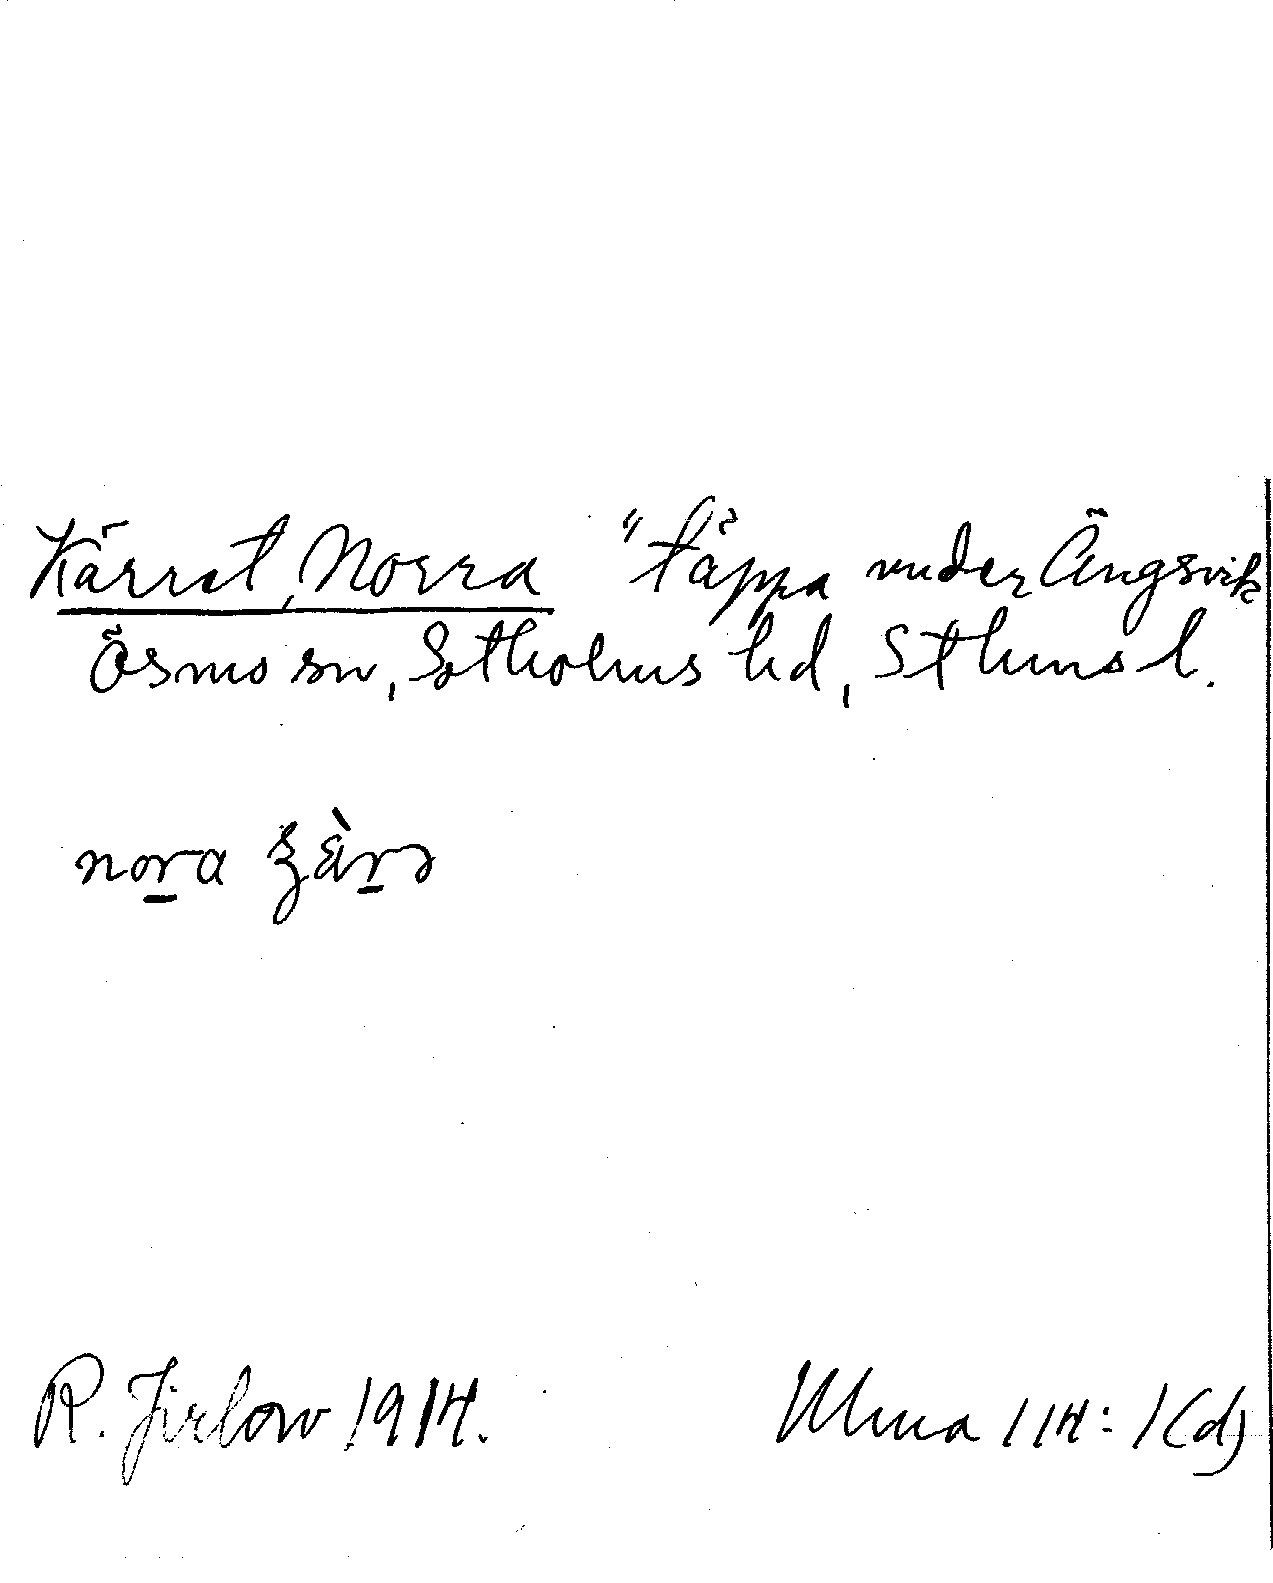 Kärret, Norra "täppa under Ängsvik
Ösmo sn, Sotholms hd, Sthms l.
nora
R. Jirlow 1914.
Ulma 114:1(d)